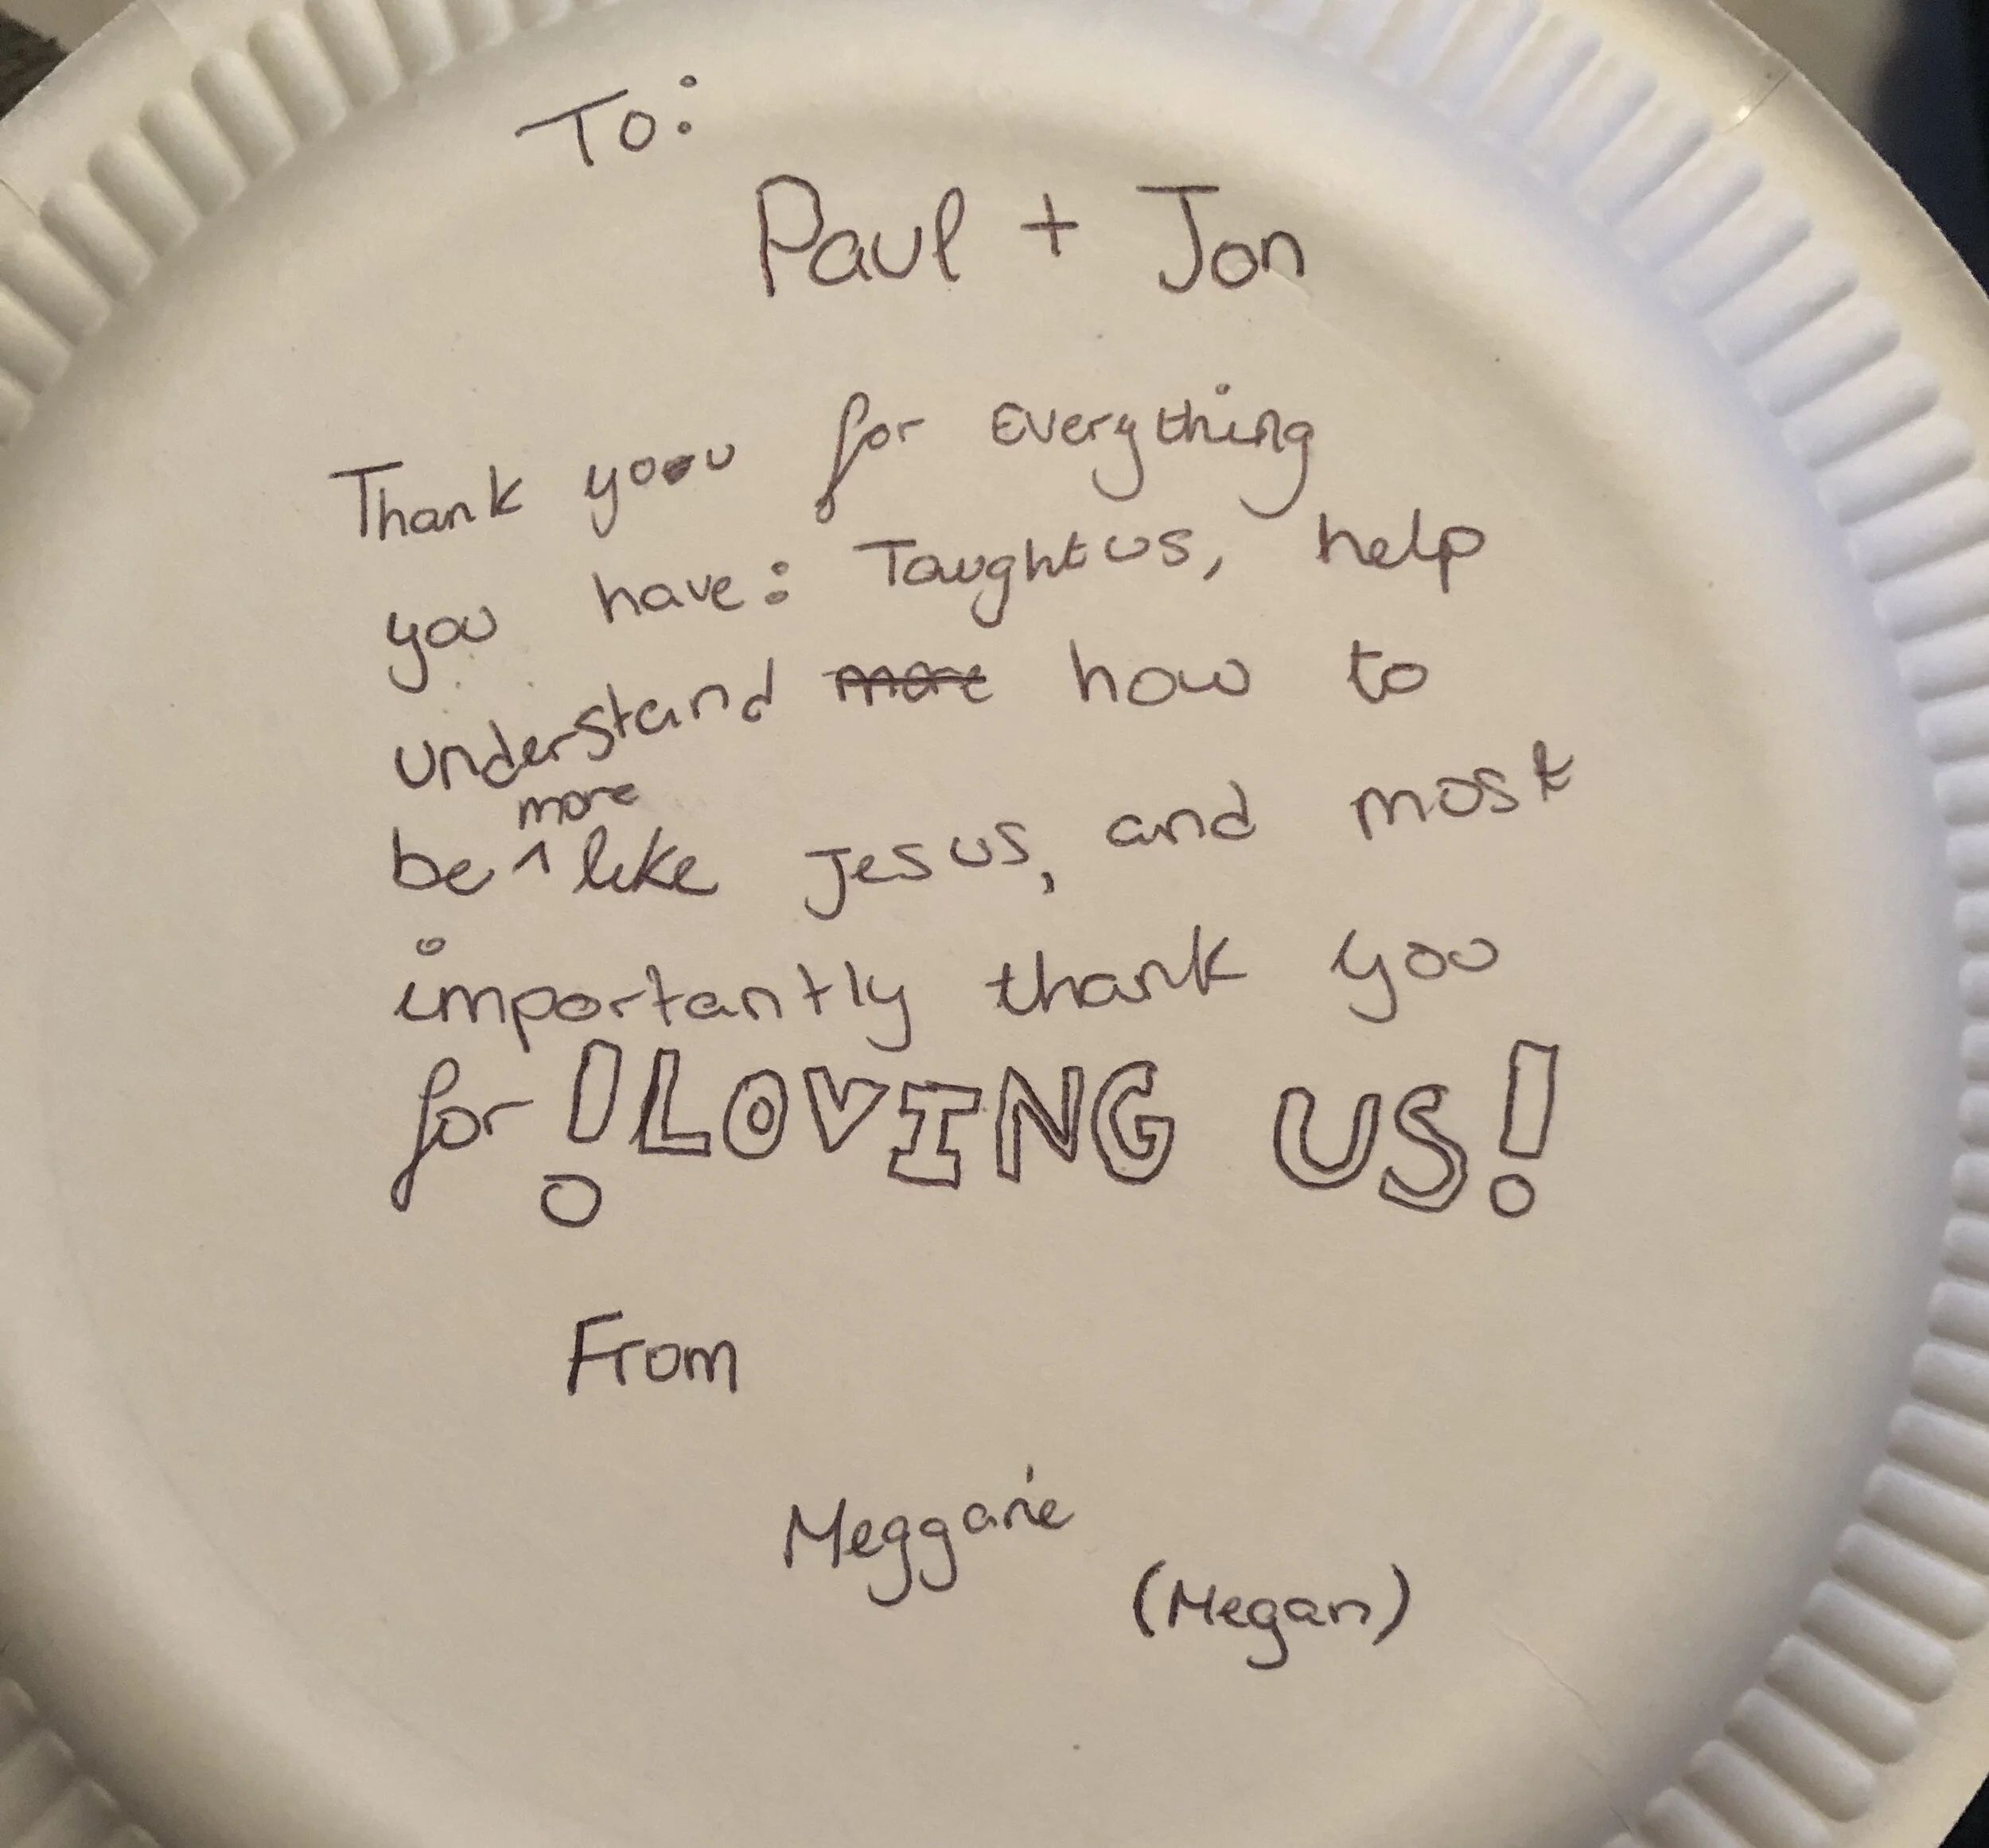 To:
Paul + Jon
Thank you for Everything
you have: Taught us, help
understand more how to
more
be ^ like Jesus, and most
importantly thank you
for !LOVING US!
From
Megganie
(Megan)